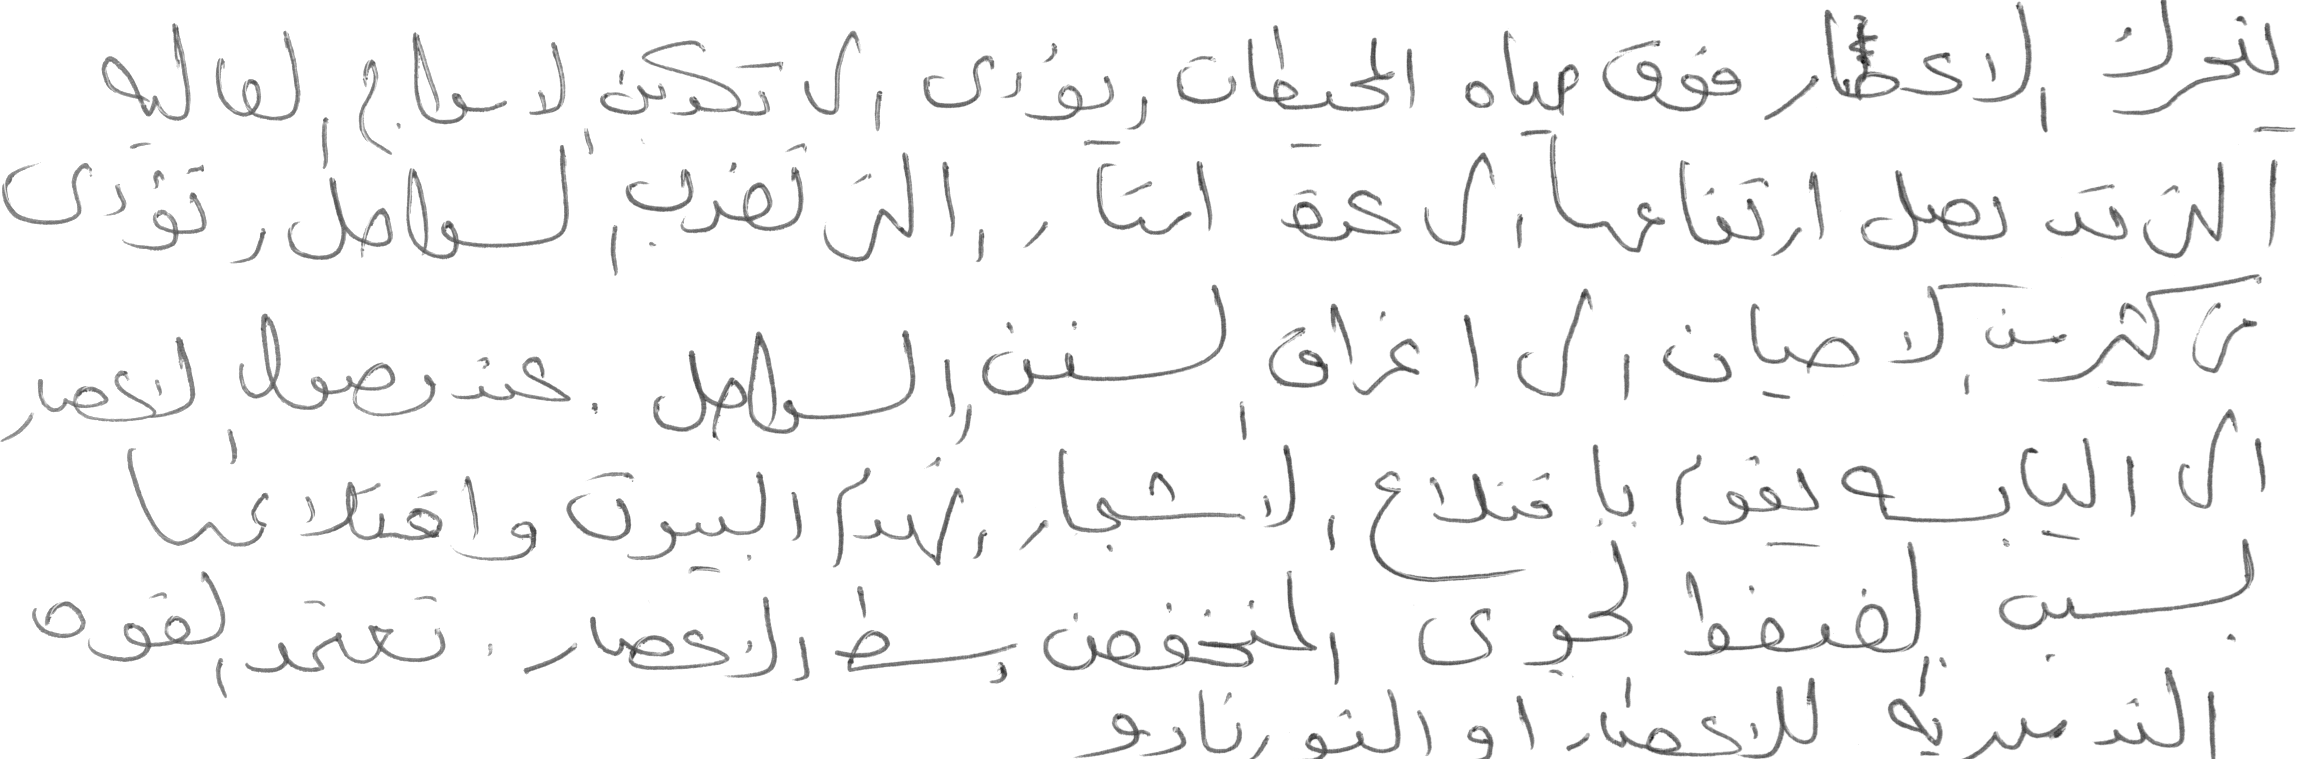 يتحرك الاعصار فوق مياه المحيطات ويؤدى الى تكوين الامواج العاليه
التى قد يصل ارتفاعها الى عدة امتار والتى تضرب السواحل وتؤدى
فى كثير من الاحيان الى اغراق السفن والسواحل . عند وصول الاعصار
الى اليابسه يقوم باقتلاع الاشجار وتهدم البيوت واقتلاعها
بسبب الضغط الجوى المنخفض وسط الاعصار . تعتمد القوه
التدميرية للاعصار او التورنادو